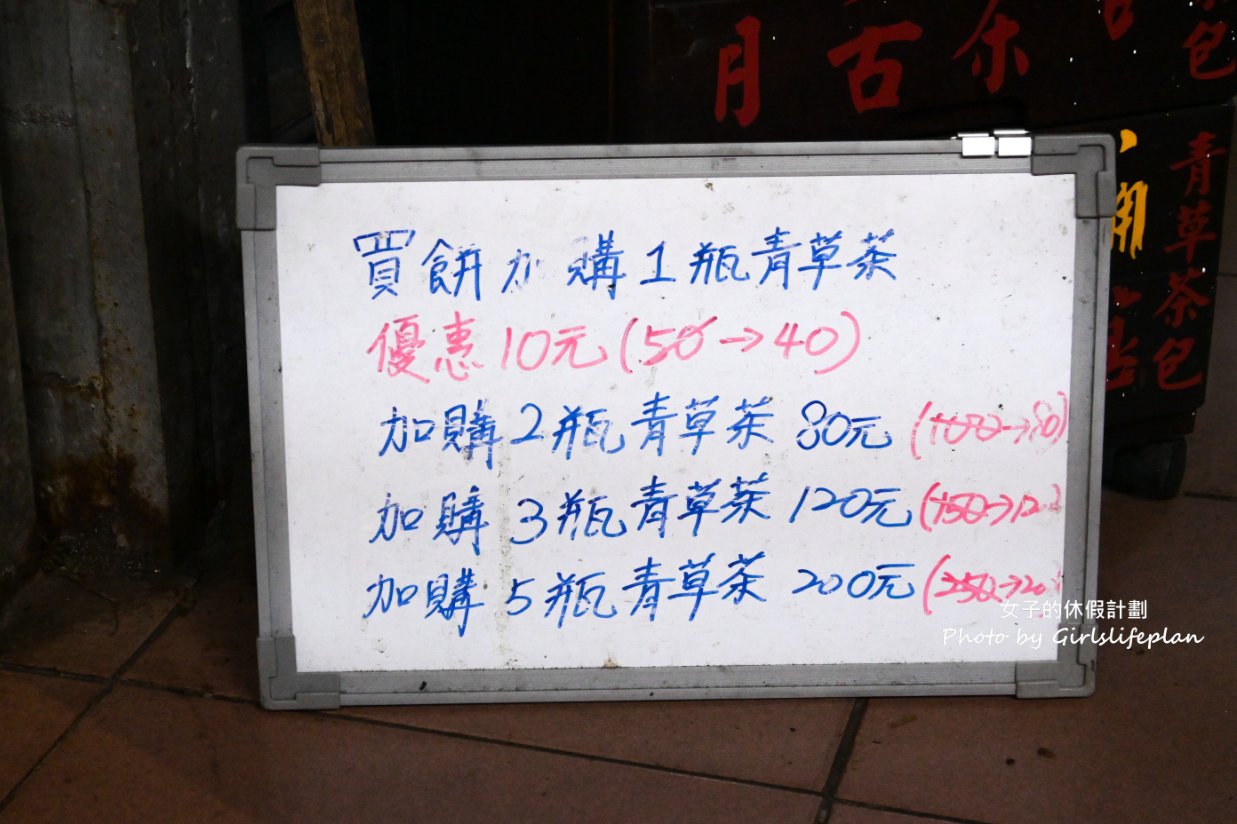 買餅加購1瓶青草茶
優惠10元(50→40)
加購2瓶青草茶 80元 (100→80)
加購3瓶青草茶 120元 (150→120)
加購5瓶青草茶 200元 (250→200)
月古
青草茶包
包
女子的休假計劃
Photo by Girlslifeplan